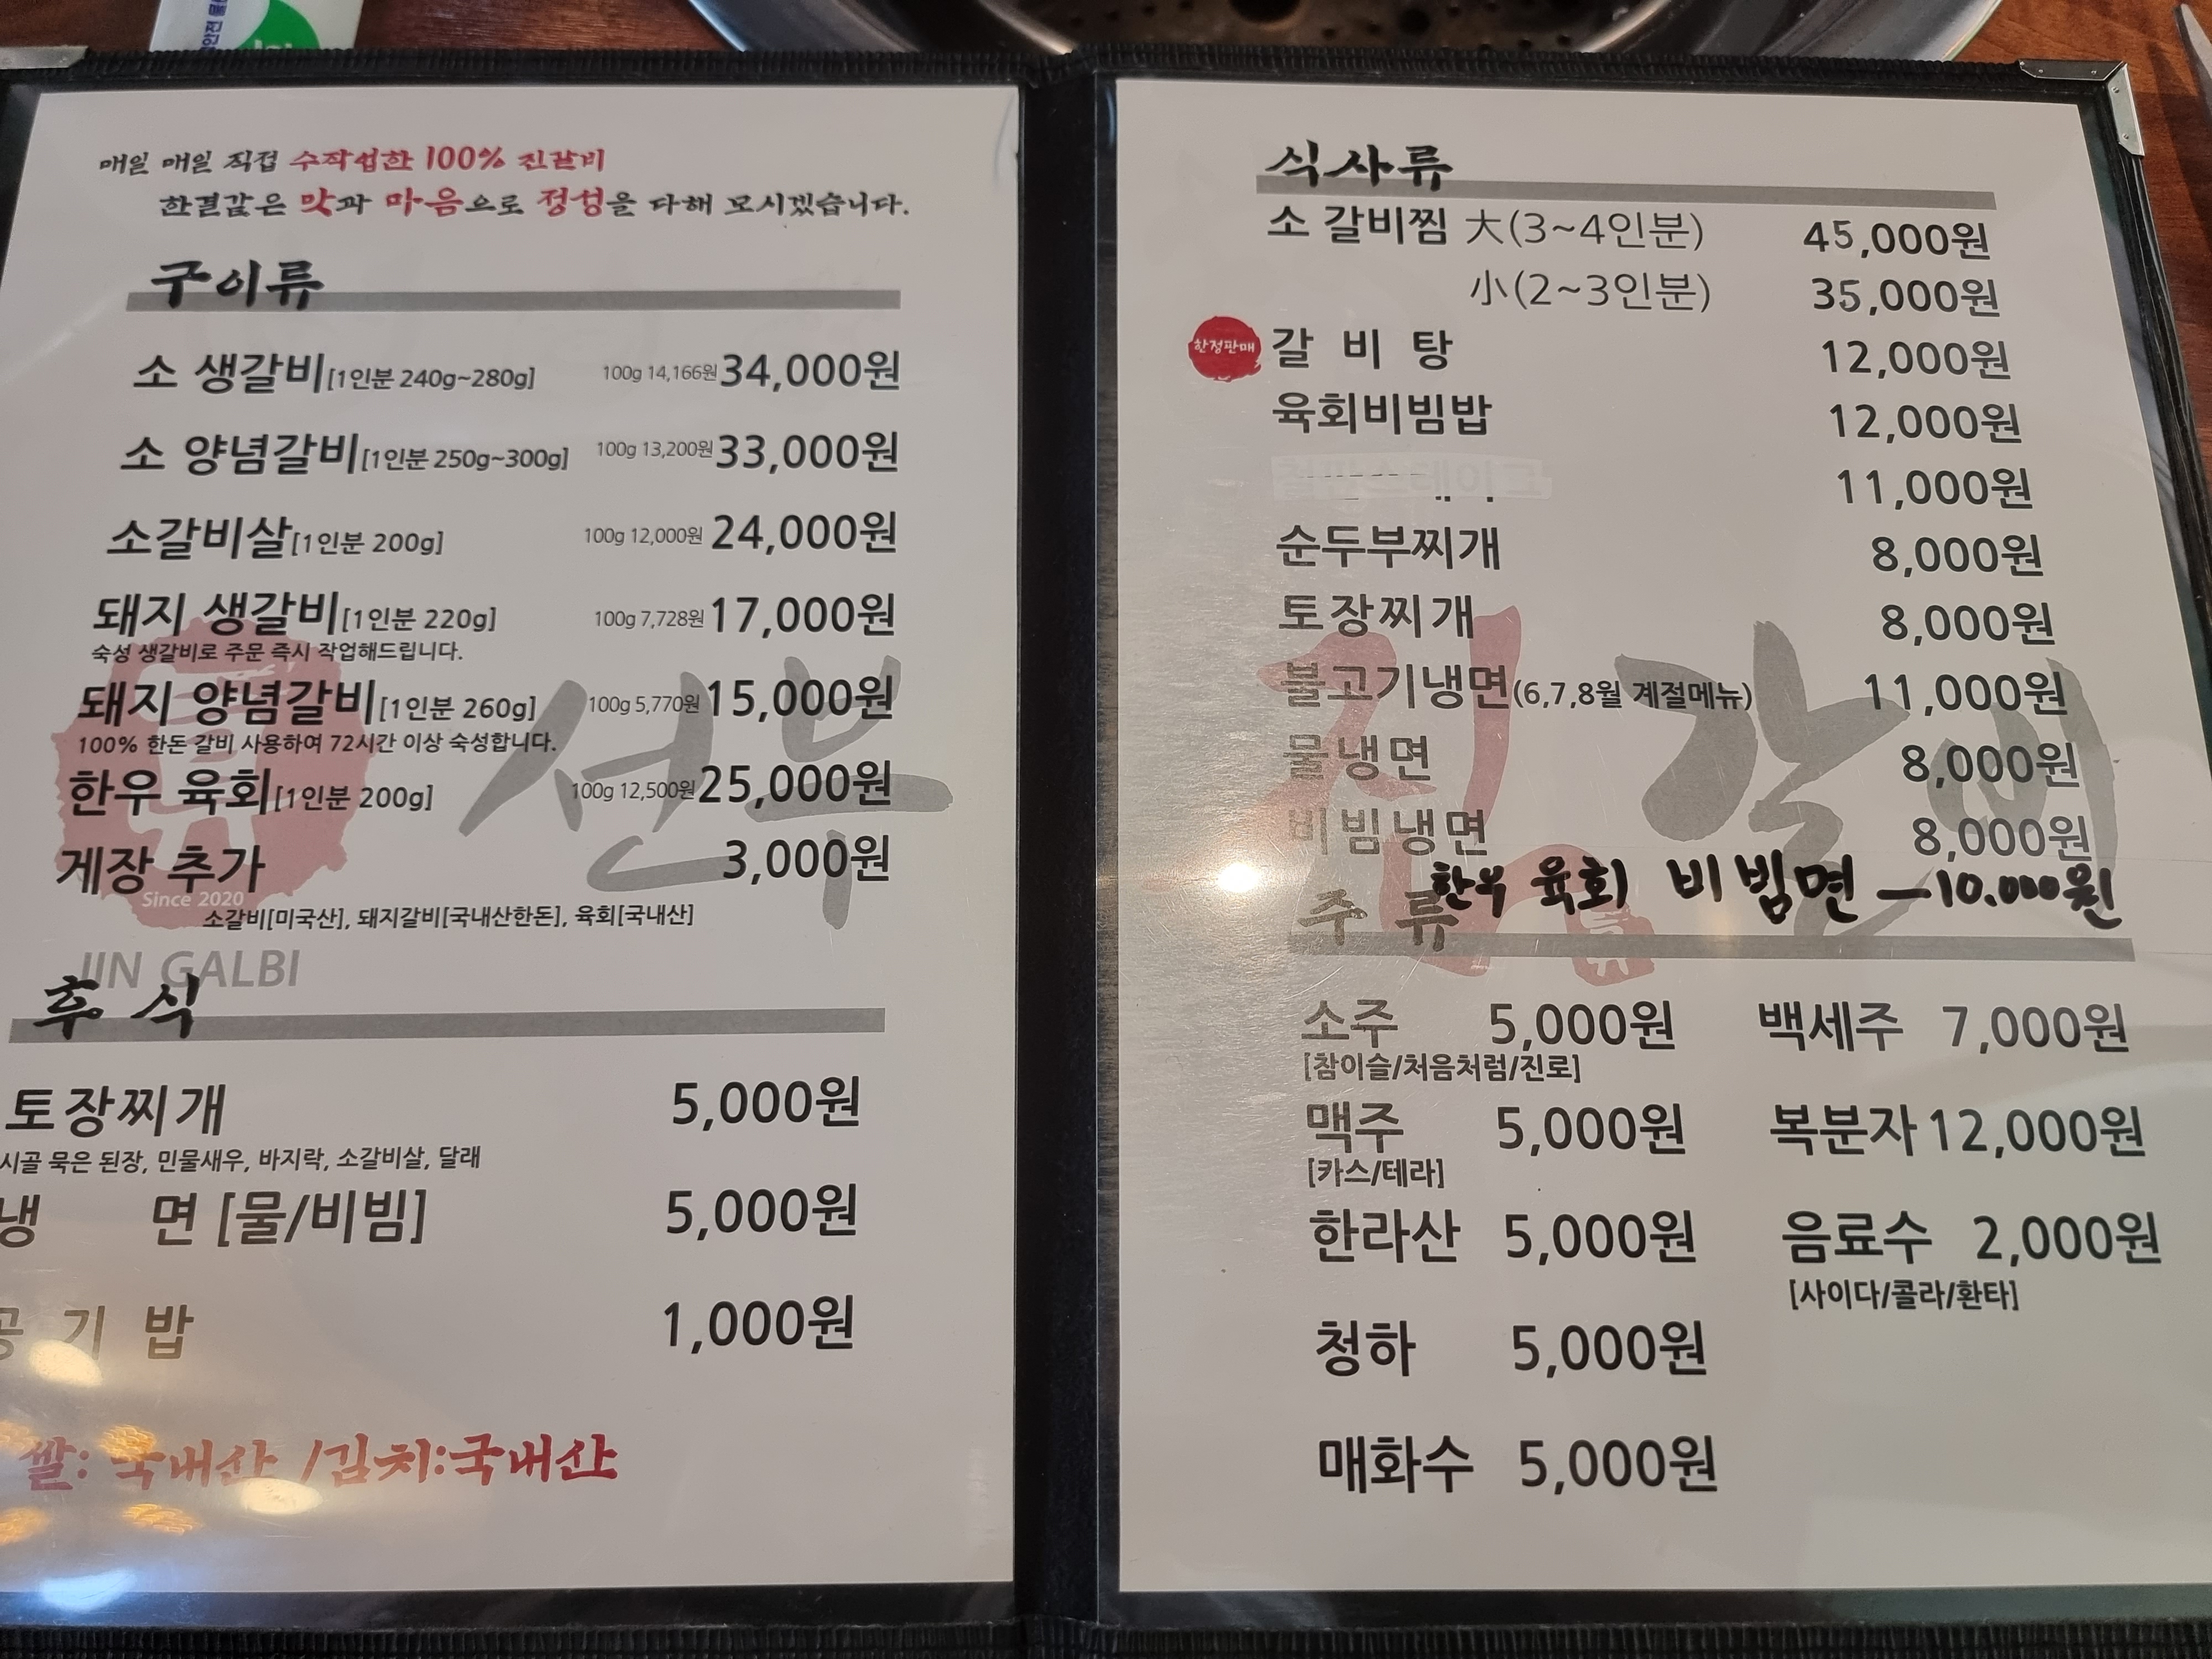 매일 매일 직접 수작업한 100% 진갈비
한결같은 맛과 마음으로 정성을 다해 모시겠습니다.
구이류
소 생갈비[1인분 240g~280g] 100g 14,166원 34,000원
소 양념갈비[1인분 250g~300g] 100g 13,200원 33,000원
소갈비살[1인분 200g] 100g 12,000원 24,000원
돼지 생갈비[1인분 220g] 100g 7,728원 17,000원
숙성 생갈비로 주문 즉시 작업해드립니다.
돼지 양념갈비[1인분 260g] 100g 5,770원 15,000원
100% 한돈 갈비 사용하여 72시간 이상 숙성합니다.
한우 육회[1인분 200g] 100g 12,500원 25,000원
게장 추가 3,000원
Since 2020
소갈비[미국산], 돼지갈비[국내산한돈], 육회[국내산]
선부
JIN GALBI
후 식
토장찌개 5,000원
시골 묵은 된장, 민물새우, 바지락, 소갈비살, 달래
냉 면 [물/비빔] 5,000원
공 기 밥 1,000원
쌀: 국내산 /김치:국내산
식사류
소 갈비찜 大(3~4인분) 45,000원
小(2~3인분) 35,000원
한정판매 갈 비 탕 12,000원
육회비빔밥 12,000원
11,000원
순두부찌개 8,000원
토장찌개 8,000원
불고기냉면(6,7,8월 계절메뉴) 11,000원
물냉면 8,000원
비빔냉면 8,000원
한우 육회 비빔면 -10.000원
진갈비
주 류
소주 5,000원 백세주 7,000원
[참이슬/처음처럼/진로]
맥주 5,000원 복분자 12,000원
[카스/테라]
한라산 5,000원 음료수 2,000원
[사이다/콜라/환타]
청하 5,000원
매화수 5,000원